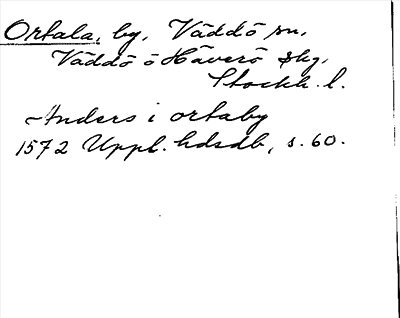 Ortala, by, Väddö sn,
Väddö o Häverö skg,
Stockh. l.
Anders i ortaby
1572 Uppl. hdsdb, s. 60.